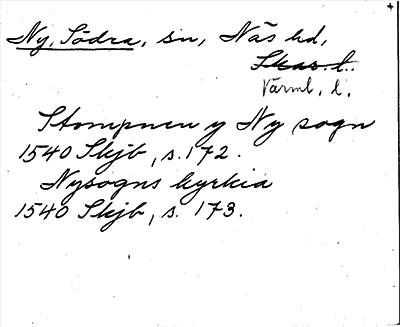 Ny, Södra, sn, Näs hd,
Skar. l.
Värml. l.
Stompnen y Ny sogn
1540 Skjb, s. 172.
Nysogns kyrkia
1540 Skjb, s. 173.